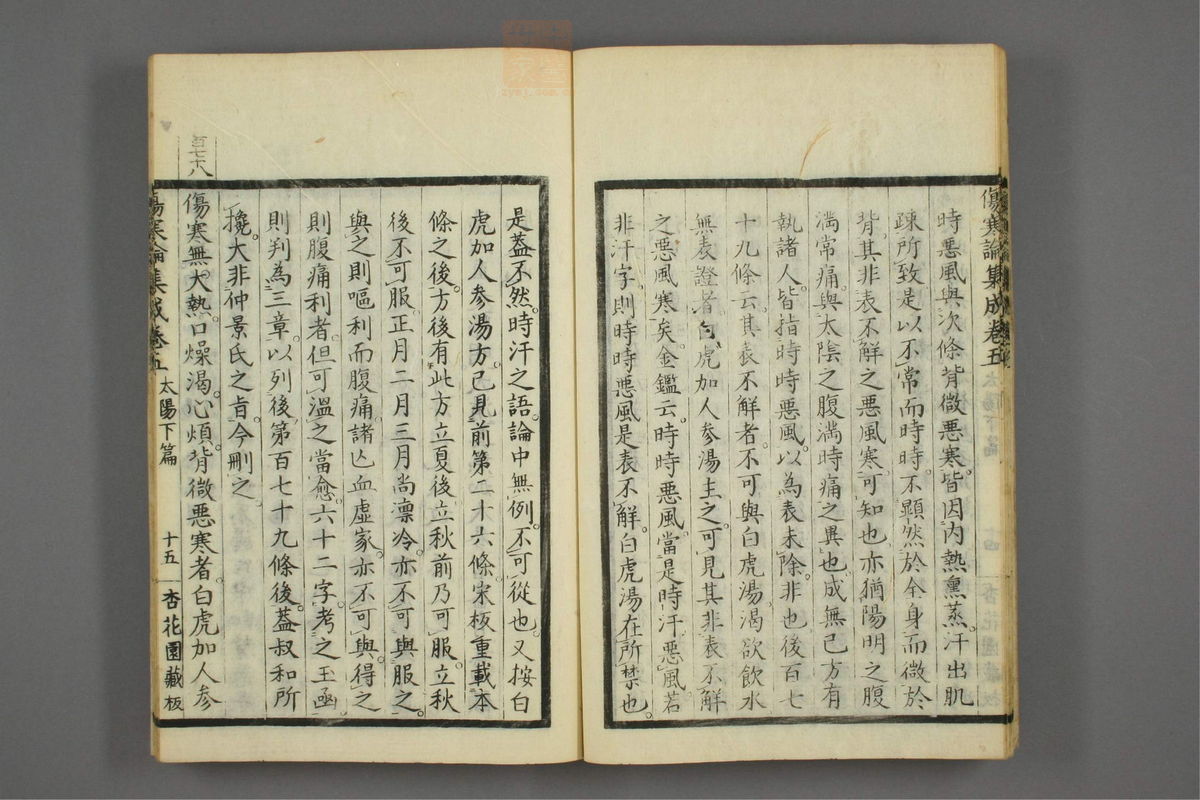 傷寒論集成卷五
時惡風與次條背微惡寒皆因内熱熏蒸汗出肌
疎所致是以不常而時時不顯然於全身而微於
背其非表不解之惡風寒可知也亦猶陽明之腹
満常痛與太陰之腹満時痛之異也成無己方有
執諸人皆指時時惡風以為表未除非也後百七
十九條云其表不解者不可與白虎湯渇欲飲水
無表證者白虎加人參湯主之可見其非表不解
之惡風寒矣金鑑云時時惡風當是時汗惡風若
非汗字則時時惡風是表不解白虎湯在所禁也
是蓋不然時汗之語論中無例不可從也又按白
虎加人參湯方已見前第二十六條宋板重載本
條之後方後有此方立夏後立秋前乃可服立秋
後不可服正月二月三月尚凛冷亦不可與服之
與之則嘔利而腹痛諸亡血虛家亦不可與得之
則腹痛利者但可溫之當愈六十二字考之玉函
則判為三章以列後第百七十九條後蓋叔和所
攙大非仲景氏之旨今刪之
百七八
傷寒無大熱口燥渴心煩背微惡寒者白虎加人參
傷寒論集成卷五 太陽下篇 十五 杏花園藏板